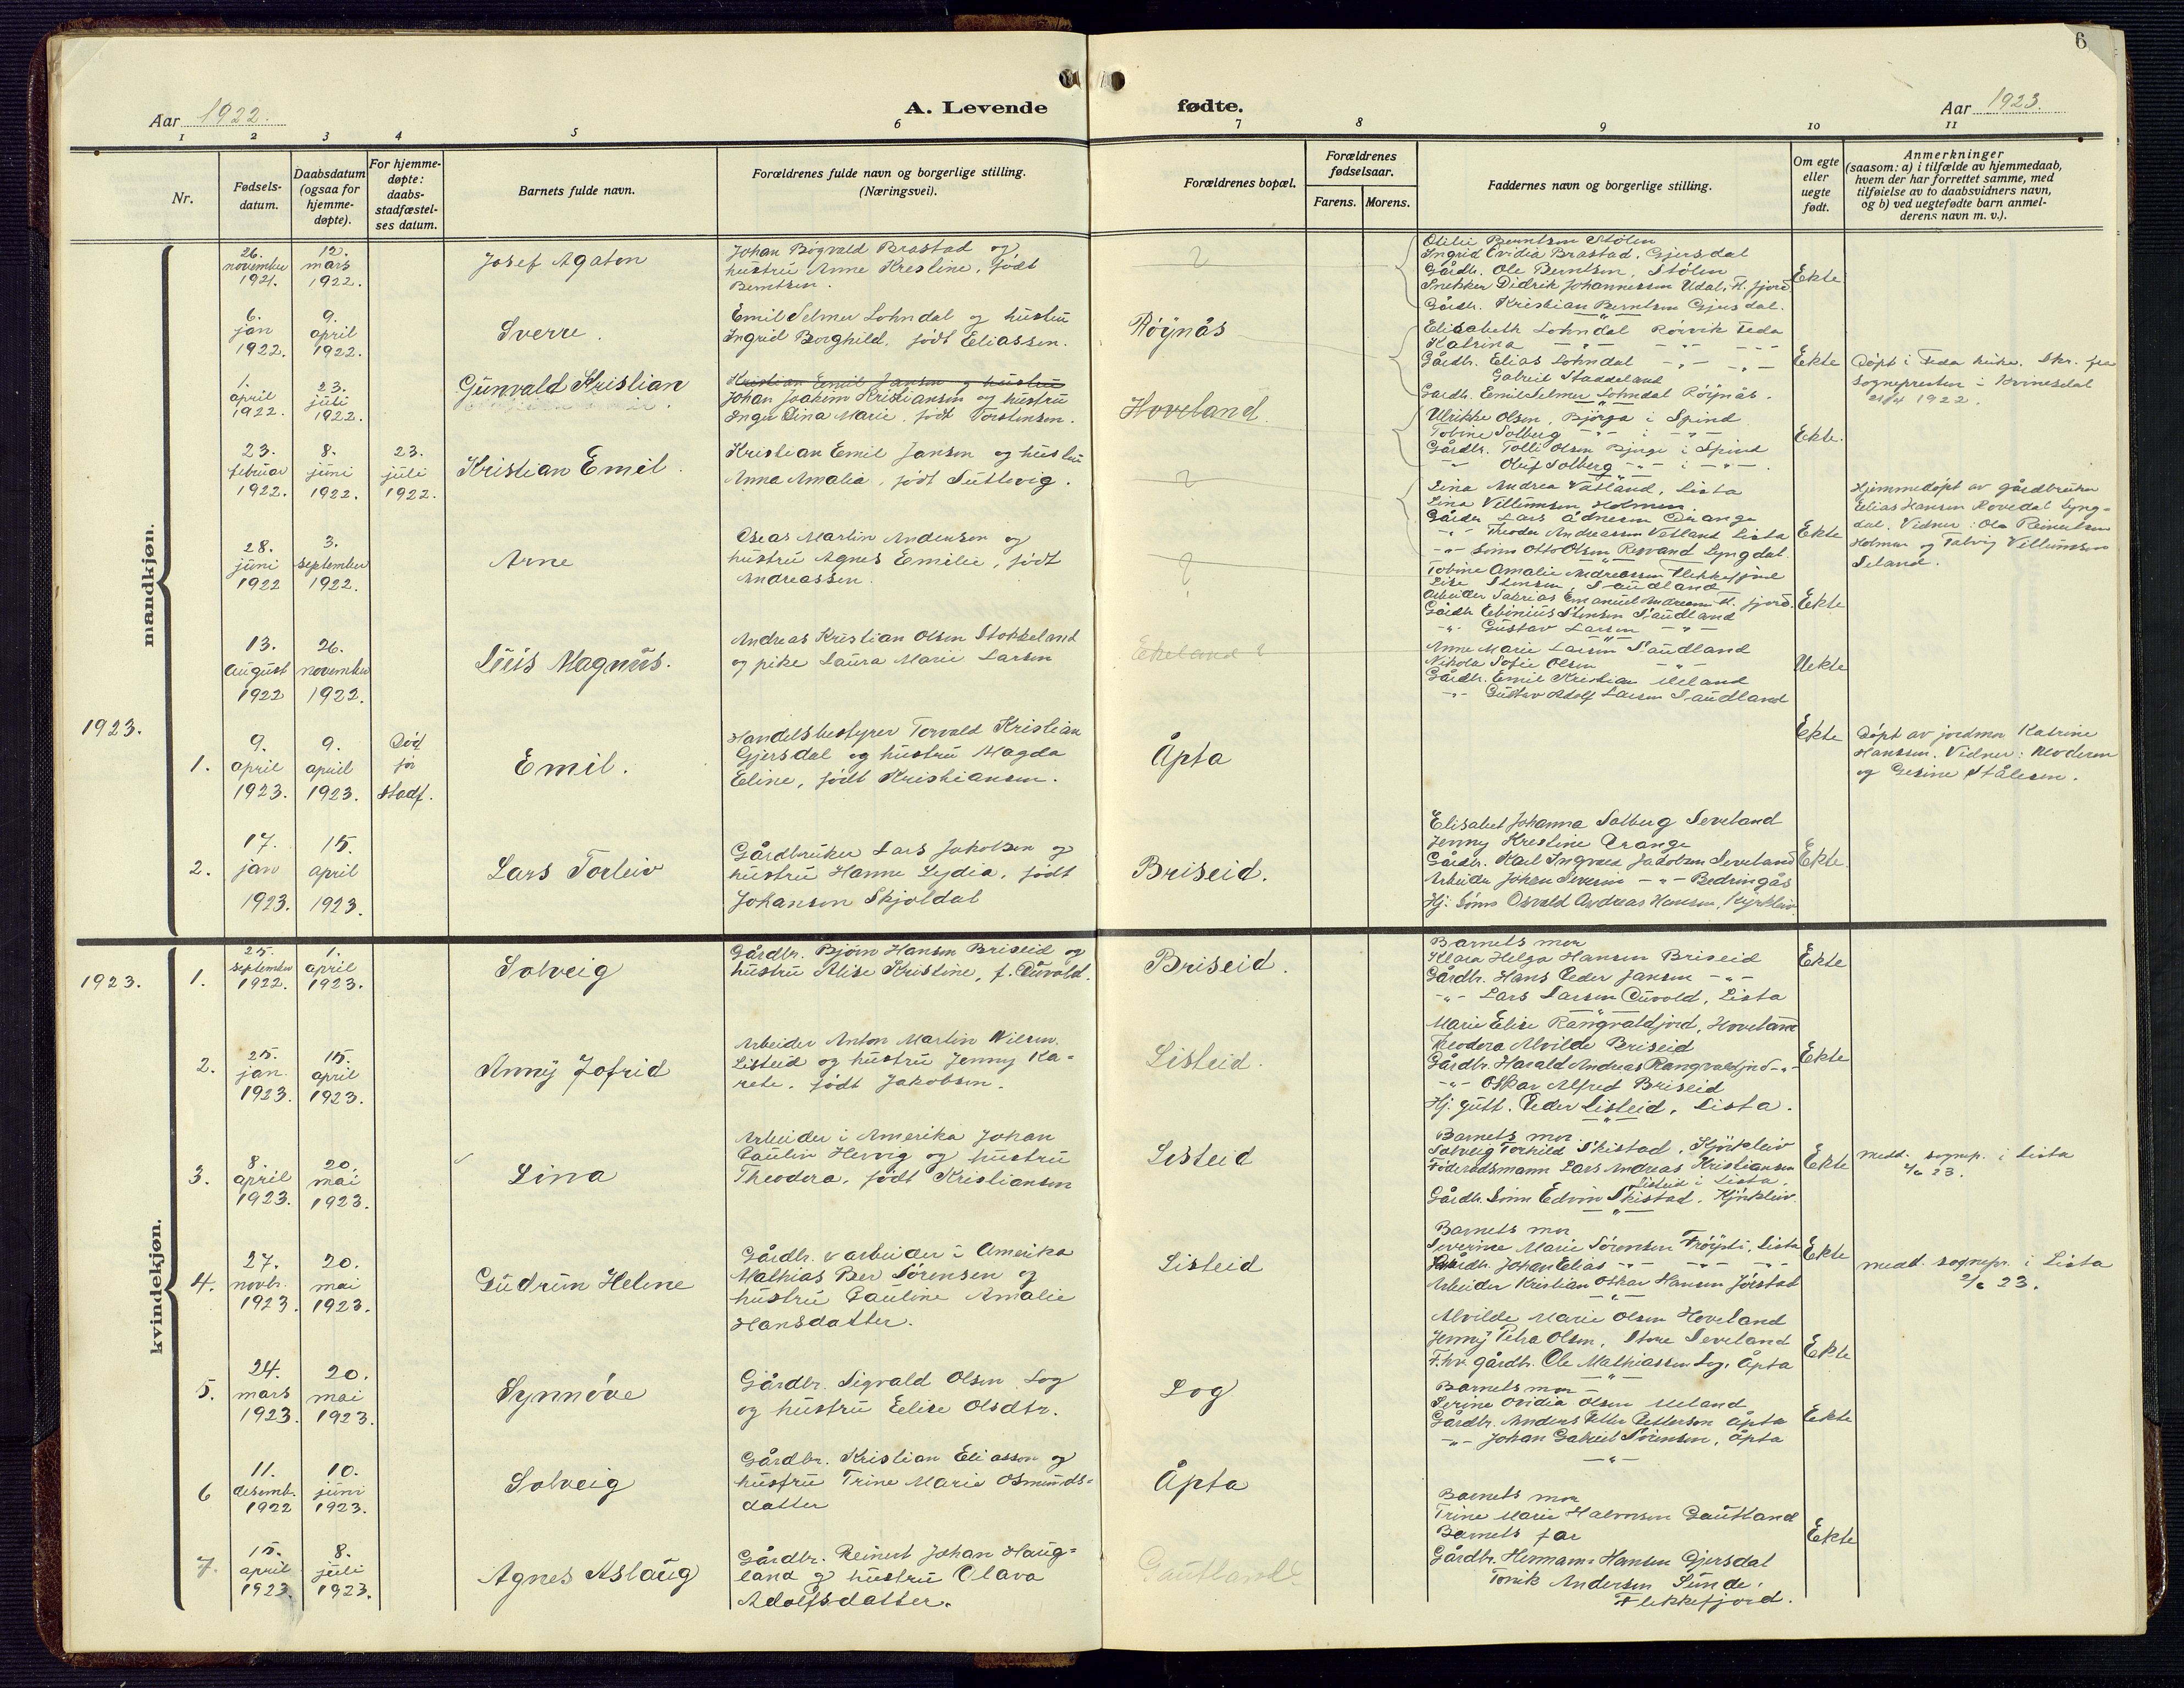 6
Aar 1922.
A. Levende fødte.
Aar 1923.
1 2 3 4 5 6 7 8 9 10 11
Nr.
Fødsels-
datum.
Daabsdatum
(ogsaa for
hjemme-
døpte).
For hjemme-
døpte:
daabs-
stadfæstel-
ses datum.
Barnets fulde navn.
Forældrenes fulde navn og borgerlige stilling.
(Næringsvei).
Forældrenes bopæl.
Forældrenes
fødselsaar.
Farens. Morens.
Faddernes navn og borgerlige stilling.
Om egte
eller
uegte
født.
Anmerkninger
(saasom: a) i tilfælde av hjemmedaab,
hvem der har forrettet samme, med
tilføielse av to daabsvidners navn,
og b) ved uegtefødte barn anmel-
derens navn m. v.).
mandkjøn.
26.
november
1921.
12.
mars
1922.
Josef Agaton
Johan Bøgvald Brastad og
hustru Anne Krestine, født
Berntsen.
?
Otilie Berntsen Stølen
Ingrid Ovidia Brastad, Gjersdal
Gårdb. Ole Berntsen, Stølen
Snekker Didrik Johannessen Udal, Fl. fjord
Gårdb. Kristian Berntsen Gjersdal.
Ekte
6.
jan
1922.
9.
april
1922.
Sverre.
Emil Selmer Lohndal og hustru
Ingrid Borghild, født Eliassen.
Røynås
Elisabeth Lohndal Rørvik Feda
Katrina -"- -"- -"-
Gårdb. Elias Lohndal -"- -"-
Gabriel Staddeland
Gårdb. Emil Selmer Lohndal Røynås.
Ekte
Døpt i Feda kirke. Skr. fra
sognepresten i Kvinesdal
1922.
1.
april
1922.
23.
juli
1922.
Gunvald Kristian
Kristian Emil Jansen og hustru
Johan Joakim Kristiansen og hustru
Inga Dina Marie, født Torstensen.
Hoveland
Ulrikke Olsen, Bjørga i Spind
Tobine Solberg -"- i -"-
Gårdb. Tolli Olsen Bjørga i Spind
-"- Oluf Solberg -"- i -"-.
Ekte.
23.
februar
1922.
8.
juni
1922.
23.
juli
1922.
Kristian Emil.
Kristian Emil Jansen og hustru
Anna Amalia, født Sutlevig.
?
Lina Andrea Vatland, Lista
Lina Villumsen Holmen
Gårdb. Lars Ådnesen Drange
-"- Theodor Andreassen Vatland Lista
-"- sønn Otto Olsen Røsvand Lyngdal.
Ekte
Hjemmedøpt av gårdbruker
Elias Hansen Rovedal Lyng-
dal. Vidner: Ola Reinertsen
Holmen og Talvig Villumsen
Seland.
28.
juni
1922
3.
september
1922.
Arne
Oseas Martin Andersen og
hustru Agnes Emilie, født
Andreassen.
?
Tobine Amalie Andreassen Flekkefjord
Lise Stensen, Saudland
Arbeider Sakrias Emanuel Andreassen Fl. fjord.
Gårdb. Ebinius Stensen Saudland
-"- Gustav Larsen -"-
Ekte
13.
august
1922
26.
november
1922.
Luis Magnus.
Andreas Kristian Olsen Stokkeland
og pike Laura Marie Larsen
Ekeland?
Anne Marie Larsen Saudland
Nikola Sofie Olsen -"-
Gårdb. Emil Kristian Ueland
-"- Gustav Adolf Larsen Saudland
Uekte
1923.
1.
9.
april
1923.
9.
april
1923.
Død
før
stadf.
Emil.
Handelsbestyrer Torvald Kristian
Gjersdal og hustru Magda
Eline, født Kristiansen.
Åpta
Ekte
Døpt av jordmor Katrine
Hanssen. Vidner: Moderen
og Gesine Stålesen.
2.
17.
jan
1923.
15.
april
1923.
Lars Torleiv
Gårdbruker Lars Jakobsen og
hustru Hanne Lydia, født
Johansen Skjoldal
Briseid.
Elisabet Johanna Solberg Seveland
Jenny Krestine Drange
Gårdb. Karl Ingvald Jakobsen Seveland
Arbeider Johan Severin -"- Bedringås
Hj. sønn Osvald Andreas Hansen, Kjørkleiv
Ekte
kvindekjøn.
1923.
1.
25.
september
1922.
1.
april
1923.
Solveig
Gårdbr. Bjørn Hansen Briseid og
hustru Alise Kristine, f. Duvold.
Briseid.
Barnets mor
Klara Helga Hansen Briseid
Gårdbr. Hans Peder Jansen -"-
-"- Lars Larsen Duvold, Lista
Ekte
2.
25.
jan
1923.
15.
april
1923.
Anny Jofrid
Arbeider Anton Martin Nilsen
Listeid og hustru Jenny Ka-
rete, født Jakobsen.
Listeid.
Marie Elise Rangvaldfjord, Hoveland
Theodora Alvilde Briseid
Gårdbr. Harald Andreas Rangvaldfjord -"-
-"- Oskar Alfred Briseid
Hj. gutt. Peder Listeid, Lista.
Ekte
3.
8.
april
1923.
20.
mai
1923.
Lina
Arbeider i Amerika Johan
Paulin Hervig og hustru
Theodora, født Kristiansen
Listeid
Barnets mor.
Solveig Torhild Skistad, Kjørkleiv
Føderådsmann Lars Andreas Kristiansen
Listeid i Lista.
Gårdb. sønn Edvin Skistad, Kjørkleiv.
Ekte
medd. sognep. i Lista
2/6 23.
4.
27.
novbr.
1923.
20.
mai
1923.
Gudrun Helene
Gårdbr. v arbeider i Amerika
Mathias Ber Sørensen og
hustru Pauline Amalie
Hansdatter.
Listeid
Barnets mor
Severine Marie Sørensen Frøysti, Lista
Gårdb. Johan Elias -"- -"- -"-
Arbeider Kristian Oskar Hansen Jørstad
Ekte
medd. sognepr. i Lista
2/6 23.
5.
24.
mars
1923.
20.
mai
1923.
Synnøve
Gårdbr. Sigvald Olsen Log
og hustru Elise Olsdtr.
Log
Alvilde Marie Olsen Hoveland
Jenny Petra Olsen, Store Seveland
F. hv. gårdbr. Ole Mathiassen Log, Åpta
Ekte
6
11.
desemb.
1922
10.
juni
1923.
Solveig
Gårdbr. Kristian Eliassen og
hustru Trine Marie Osmunds-
datter
Åpta
Barnets mor
Serine Ovidia Olsen Ueland
Gårdbr. Anders Petter Pettersen Åpta
-"- Johan Gabriel Sørensen, Åpta
Ekte
7.
15.
april
1923.
8.
juli
1923.
Agnes Aslaug
Gårdbr. Reinert Johan Haug-
land og hustru Olava
Adolfsdatter.
Gautland?
Barnets mor
Trine Marie Halvorsen Gautland
Barnets far
Gårdbr. Hermann Hansen Gjersdal
Tonik Andersen Sunde,
Flekkefjord.
Ekte